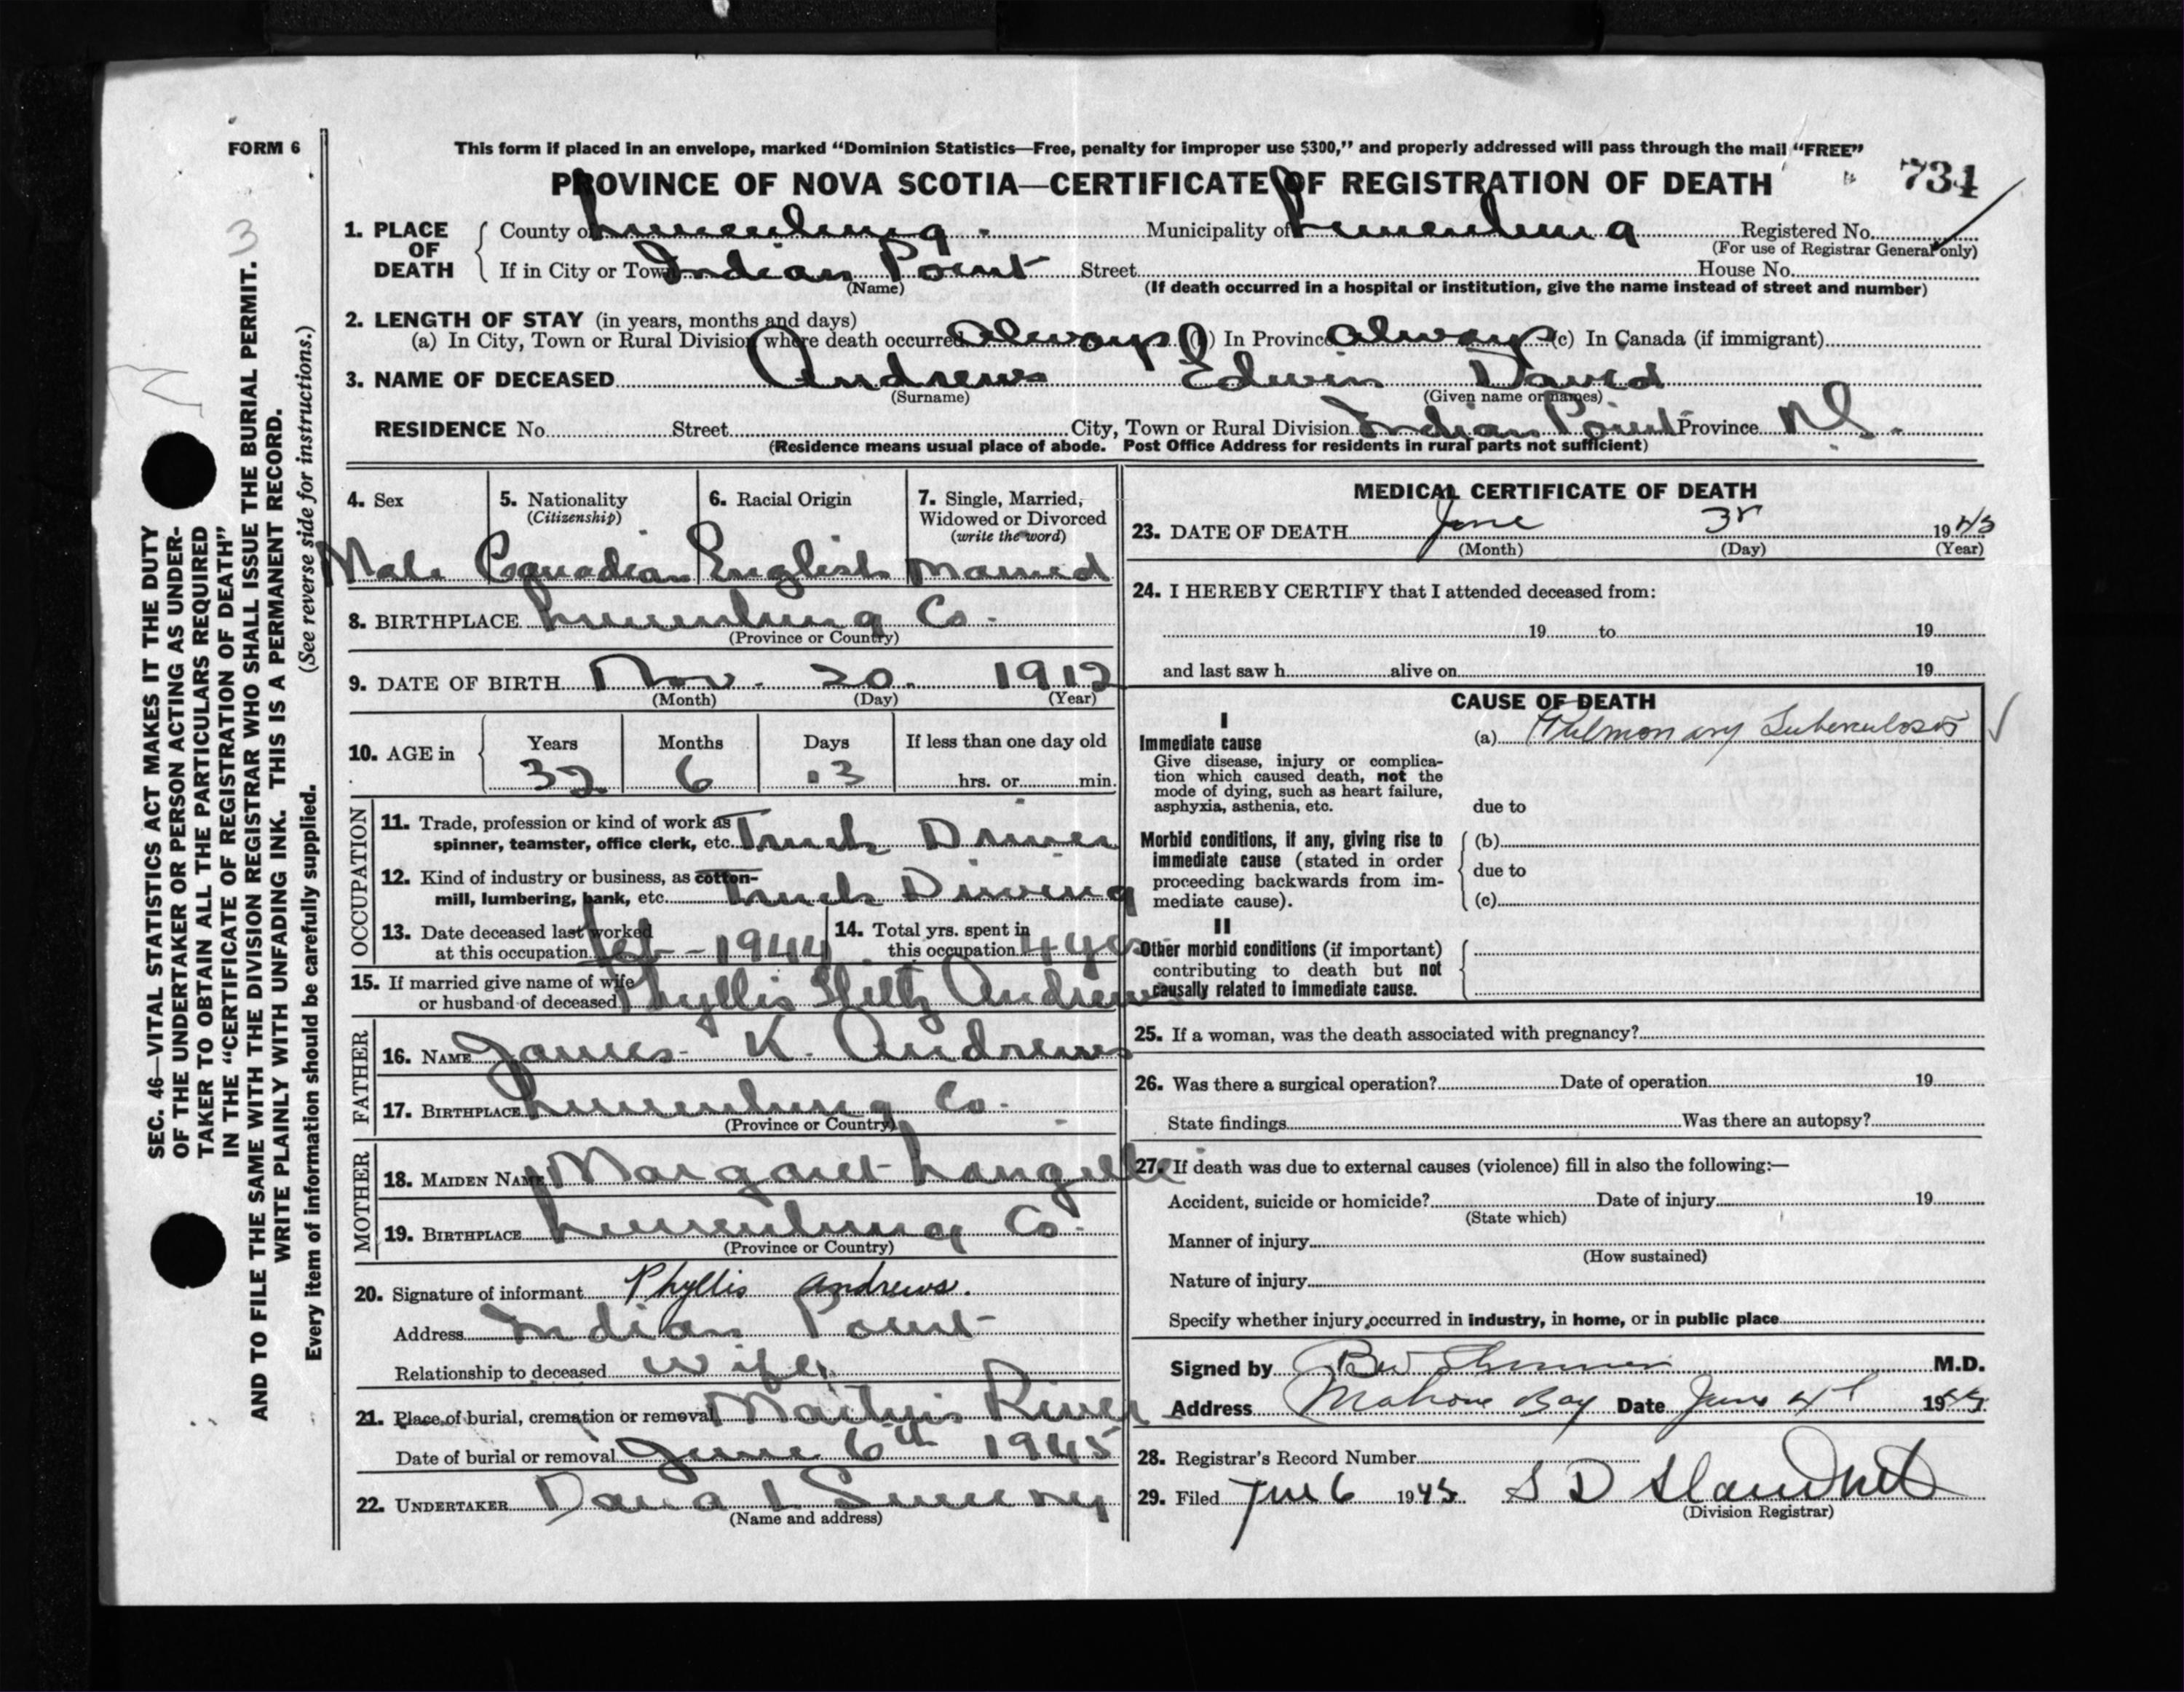 FORM 6
This form if placed in an envelope, marked “Dominion Statistics—Free, penalty for improper use $300,” and properly addressed will pass through the mail “FREE”
PROVINCE OF NOVA SCOTIA—CERTIFICATE OF REGISTRATION OF DEATH
734
3
1. PLACE OF DEATH
County of Lunenburg. Municipality of Lunenburg Registered No.
(For use of Registrar General only)
If in City or Town Indian Point Street House No.
(Name)
(If death occurred in a hospital or institution, give the name instead of street and number)
2. LENGTH OF STAY (in years, months and days)
(a) In City, Town or Rural Division where death occurred always (b) In Province always (c) In Canada (if immigrant)
3. NAME OF DECEASED Andrews Edwin David
(Surname) (Given name or names)
RESIDENCE No. Street City, Town or Rural Division Indian Point Province N.S.
(Residence means usual place of abode. Post Office Address for residents in rural parts not sufficient)
4. Sex
Male
5. Nationality
(Citizenship)
Canadian
6. Racial Origin
English
7. Single, Married,
Widowed or Divorced
(write the word)
Married
8. BIRTHPLACE Lunenburg Co.
(Province or Country)
9. DATE OF BIRTH Nov. 20. 1912
(Month) (Day) (Year)
10. AGE in
Years Months Days If less than one day old
32 6 13 hrs. or min.
OCCUPATION
11. Trade, profession or kind of work as
spinner, teamster, office clerk, etc. Truck Driver
12. Kind of industry or business, as cotton-
mill, lumbering, bank, etc. Truck Driving
13. Date deceased last worked
at this occupation Feb - 1944
14. Total yrs. spent in
this occupation 4 yrs
15. If married give name of wife
or husband of deceased Phyllis Hiltz Andrews
FATHER
16. NAME James K. Andrews
17. BIRTHPLACE Lunenburg Co.
(Province or Country)
MOTHER
18. MAIDEN NAME Margaret Langille
19. BIRTHPLACE Lunenburg Co.
(Province or Country)
20. Signature of informant Phyllis Andrews.
Address Indian Point
Relationship to deceased wife
21. Place of burial, cremation or removal Martins River
Date of burial or removal June 6th 1945
22. UNDERTAKER Dana L Sweeny
(Name and address)
MEDICAL CERTIFICATE OF DEATH
23. DATE OF DEATH June 3r 1945
(Month) (Day) (Year)
24. I HEREBY CERTIFY that I attended deceased from:
19 to 19
and last saw h alive on 19
CAUSE OF DEATH
I
Immediate cause
Give disease, injury or complica-
tion which caused death, not the
mode of dying, such as heart failure,
asphyxia, asthenia, etc.
(a) Pulmonary Tuberculosis
due to
Morbid conditions, if any, giving rise to
immediate cause (stated in order
proceeding backwards from im-
mediate cause).
(b)
due to
(c)
II
Other morbid conditions (if important)
contributing to death but not
causally related to immediate cause.
25. If a woman, was the death associated with pregnancy?
26. Was there a surgical operation? Date of operation 19
State findings Was there an autopsy?
27. If death was due to external causes (violence) fill in also the following:—
Accident, suicide or homicide? Date of injury 19
(State which)
Manner of injury
(How sustained)
Nature of injury
Specify whether injury occurred in industry, in home, or in public place
Signed by M.D.
Address Mahone Bay Date June 4 1945
28. Registrar's Record Number
29. Filed June 6 1945 S D
(Division Registrar)
SEC. 46—VITAL STATISTICS ACT MAKES IT THE DUTY
OF THE UNDERTAKER OR PERSON ACTING AS UNDER-
TAKER TO OBTAIN ALL THE PARTICULARS REQUIRED
IN THE “CERTIFICATE OF REGISTRATION OF DEATH”
AND TO FILE THE SAME WITH THE DIVISION REGISTRAR WHO SHALL ISSUE THE BURIAL PERMIT.
WRITE PLAINLY WITH UNFADING INK. THIS IS A PERMANENT RECORD.
Every item of information should be carefully supplied. (See reverse side for instructions.)